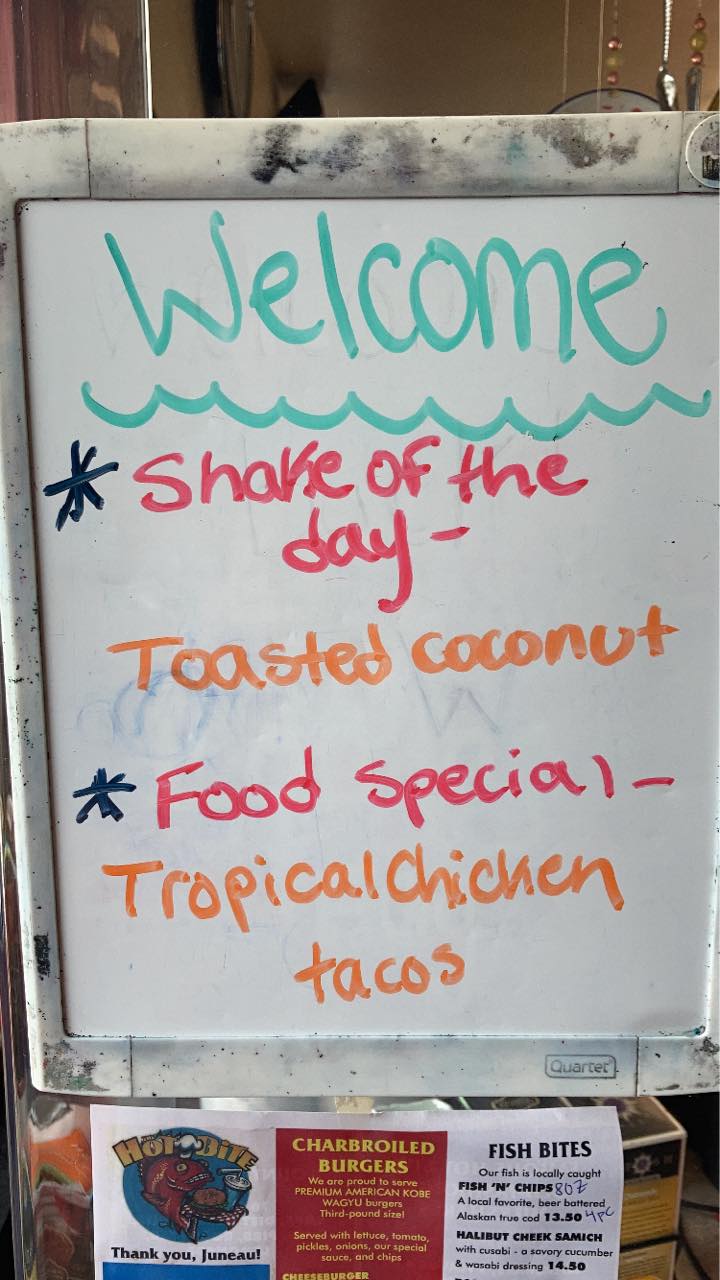 Welcome
* Shake of the
day -
Toasted coconut
* Food Special -
Tropical Chicken
tacos
Quartet
HOT BITE
Thank you, Juneau!
CHARBROILED
BURGERS
We are proud to serve
PREMIUM AMERICAN KOBE
WAGYU burgers
Third-pound size!
Served with lettuce, tomato,
pickles, onions, our special
sauce, and chips
CHEESEBURGER
FISH BITES
Our fish is locally caught
FISH 'N' CHIPS 8oz
A local favorite, beer battered
Alaskan true cod 13.50 4pc
HALIBUT CHEEK SAMICH
with cusabi - a savory cucumber
& wasabi dressing 14.50